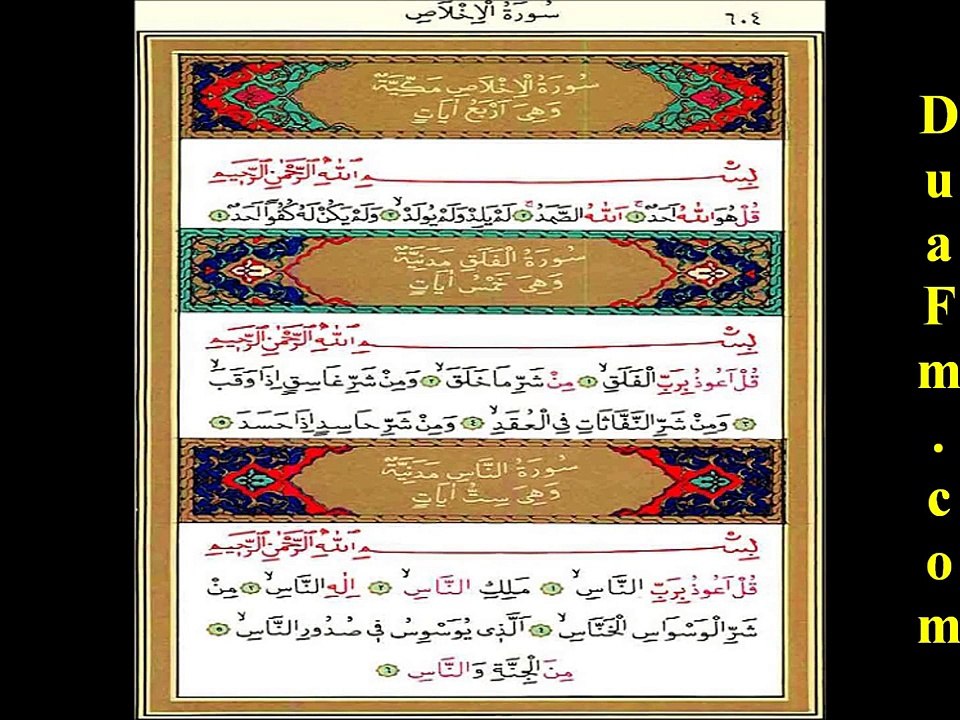 سُورَةُ الْاِخْلَاصِ
٦٠٤
سُورَةُ الْاِخْلَاصِ مَكِّيَّةٌ
وَهِيَ اَرْبَعُ اٰيَاتٍ
بِسْمِ اللّٰهِ الرَّحْمٰنِ الرَّحِيمِ
قُلْ هُوَ اللّٰهُ اَحَدٌۚ ﴿١﴾ اَللّٰهُ الصَّمَدُۚ ﴿٢﴾ لَمْ يَلِدْ وَلَمْ يُولَدْۙ ﴿٣﴾ وَلَمْ يَكُنْ لَهُ كُفُوًا اَحَدٌ ﴿٤﴾
سُورَةُ الْفَلَقِ مَدَنِيَّةٌ
وَهِيَ خَمْسُ اٰيَاتٍ
بِسْمِ اللّٰهِ الرَّحْمٰنِ الرَّحِيمِ
قُلْ اَعُوذُ بِرَبِّ الْفَلَقِۙ ﴿١﴾ مِنْ شَرِّ مَا خَلَقَۙ ﴿٢﴾ وَمِنْ شَرِّ غَاسِقٍ اِذَا وَقَبَۙ
﴿٣﴾ وَمِنْ شَرِّ النَّفَّاثَاتِ فِي الْعُقَدِۙ ﴿٤﴾ وَمِنْ شَرِّ حَاسِدٍ اِذَا حَسَدَ ﴿٥﴾
سُورَةُ النَّاسِ مَدَنِيَّةٌ
وَهِيَ سِتُّ اٰيَاتٍ
بِسْمِ اللّٰهِ الرَّحْمٰنِ الرَّحِيمِ
قُلْ اَعُوذُ بِرَبِّ النَّاسِۙ ﴿١﴾ مَلِكِ النَّاسِۙ ﴿٢﴾ اِلٰهِ النَّاسِۙ ﴿٣﴾ مِنْ
شَرِّ الْوَسْوَاسِ الْخَنَّاسِۙ ﴿٤﴾ اَلَّذِي يُوَسْوِسُ فِي صُدُورِ النَّاسِۙ ﴿٥﴾
مِنَ الْجِنَّةِ وَالنَّاسِ ﴿٦﴾
DuaFm.com